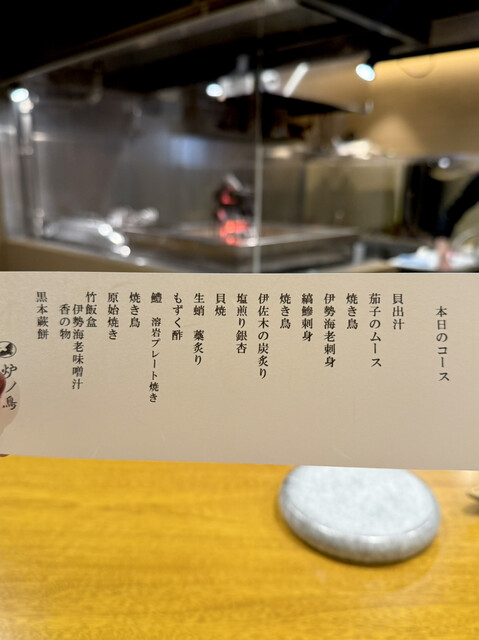 本日のコース
貝出汁
茄子のムース
焼き鳥
伊勢海老刺身
縞鯵刺身
焼き鳥
伊佐木の炭炙り
塩煎り銀杏
貝焼
生蛸 藁炙り
もずく酢
鱧 溶岩プレート焼き
焼き鳥
原始焼き
竹飯盒
伊勢海老味噌汁
香の物
黒本蕨餅
炉ノ鳥